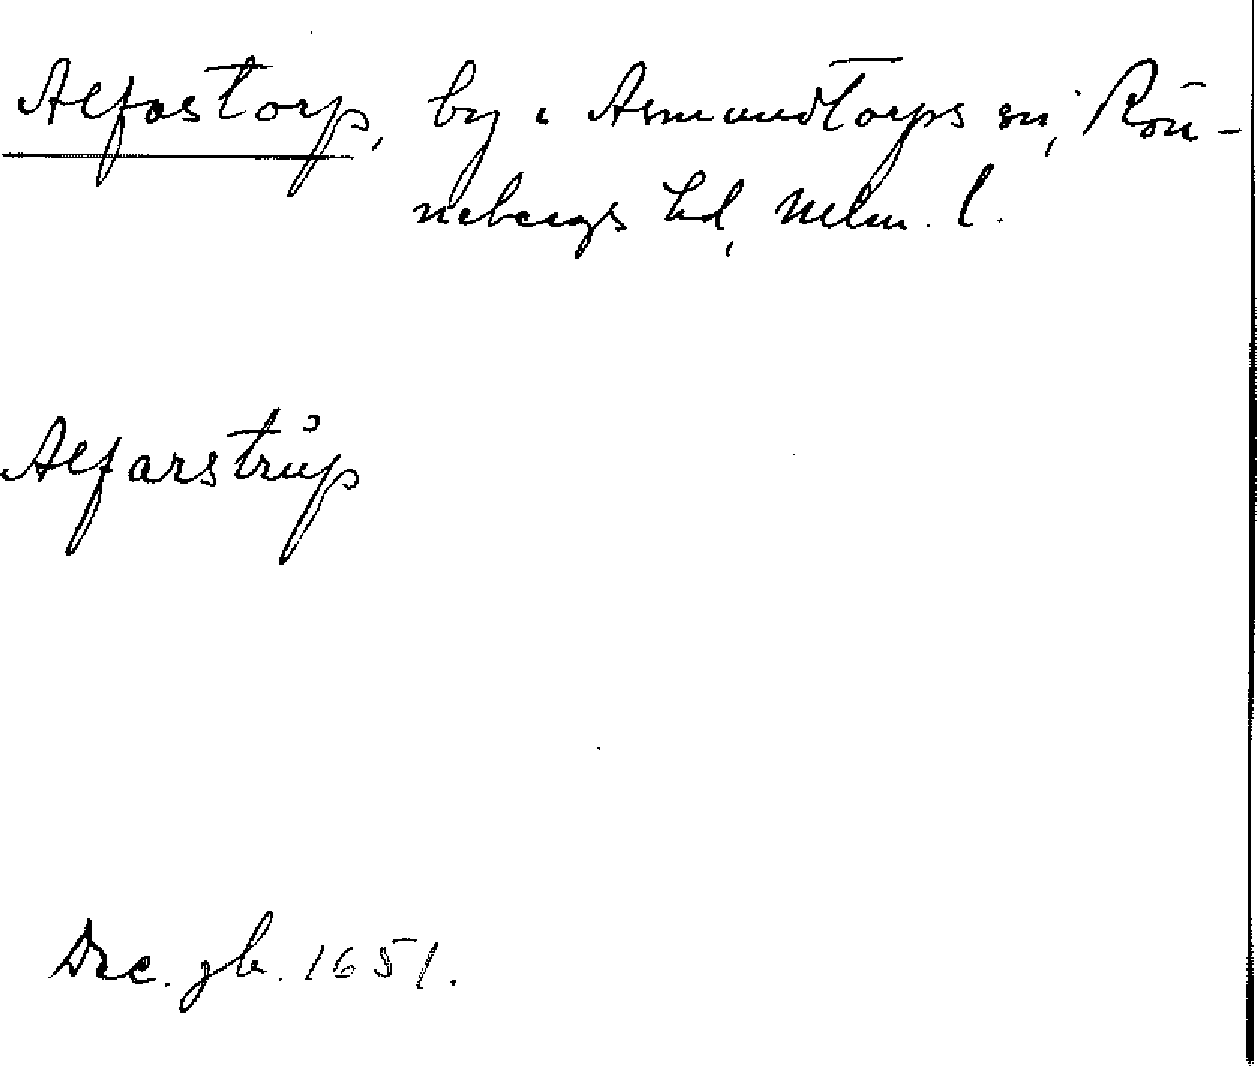 Alfastorp, by i Asmundtorps sn, Rön-
nebergs hd, Mlm. l.
Alfarstrup
Dec. jb. 1651.